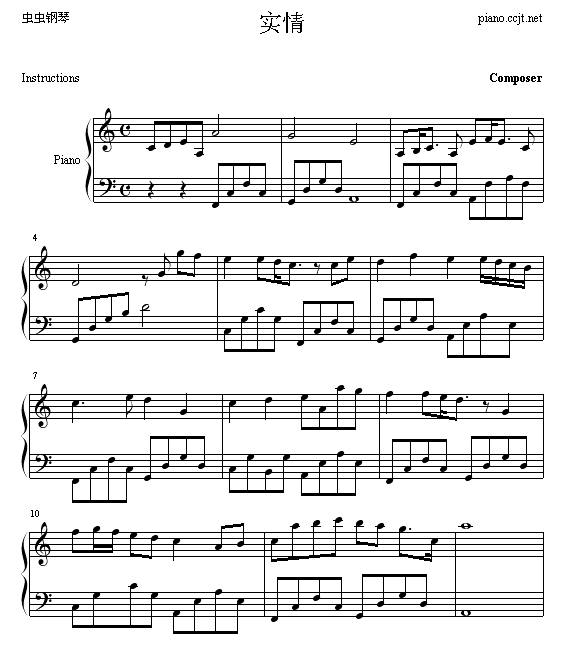 虫虫钢琴
实情
piano.ccjt.net
Instructions
Composer
Piano
4
7
10